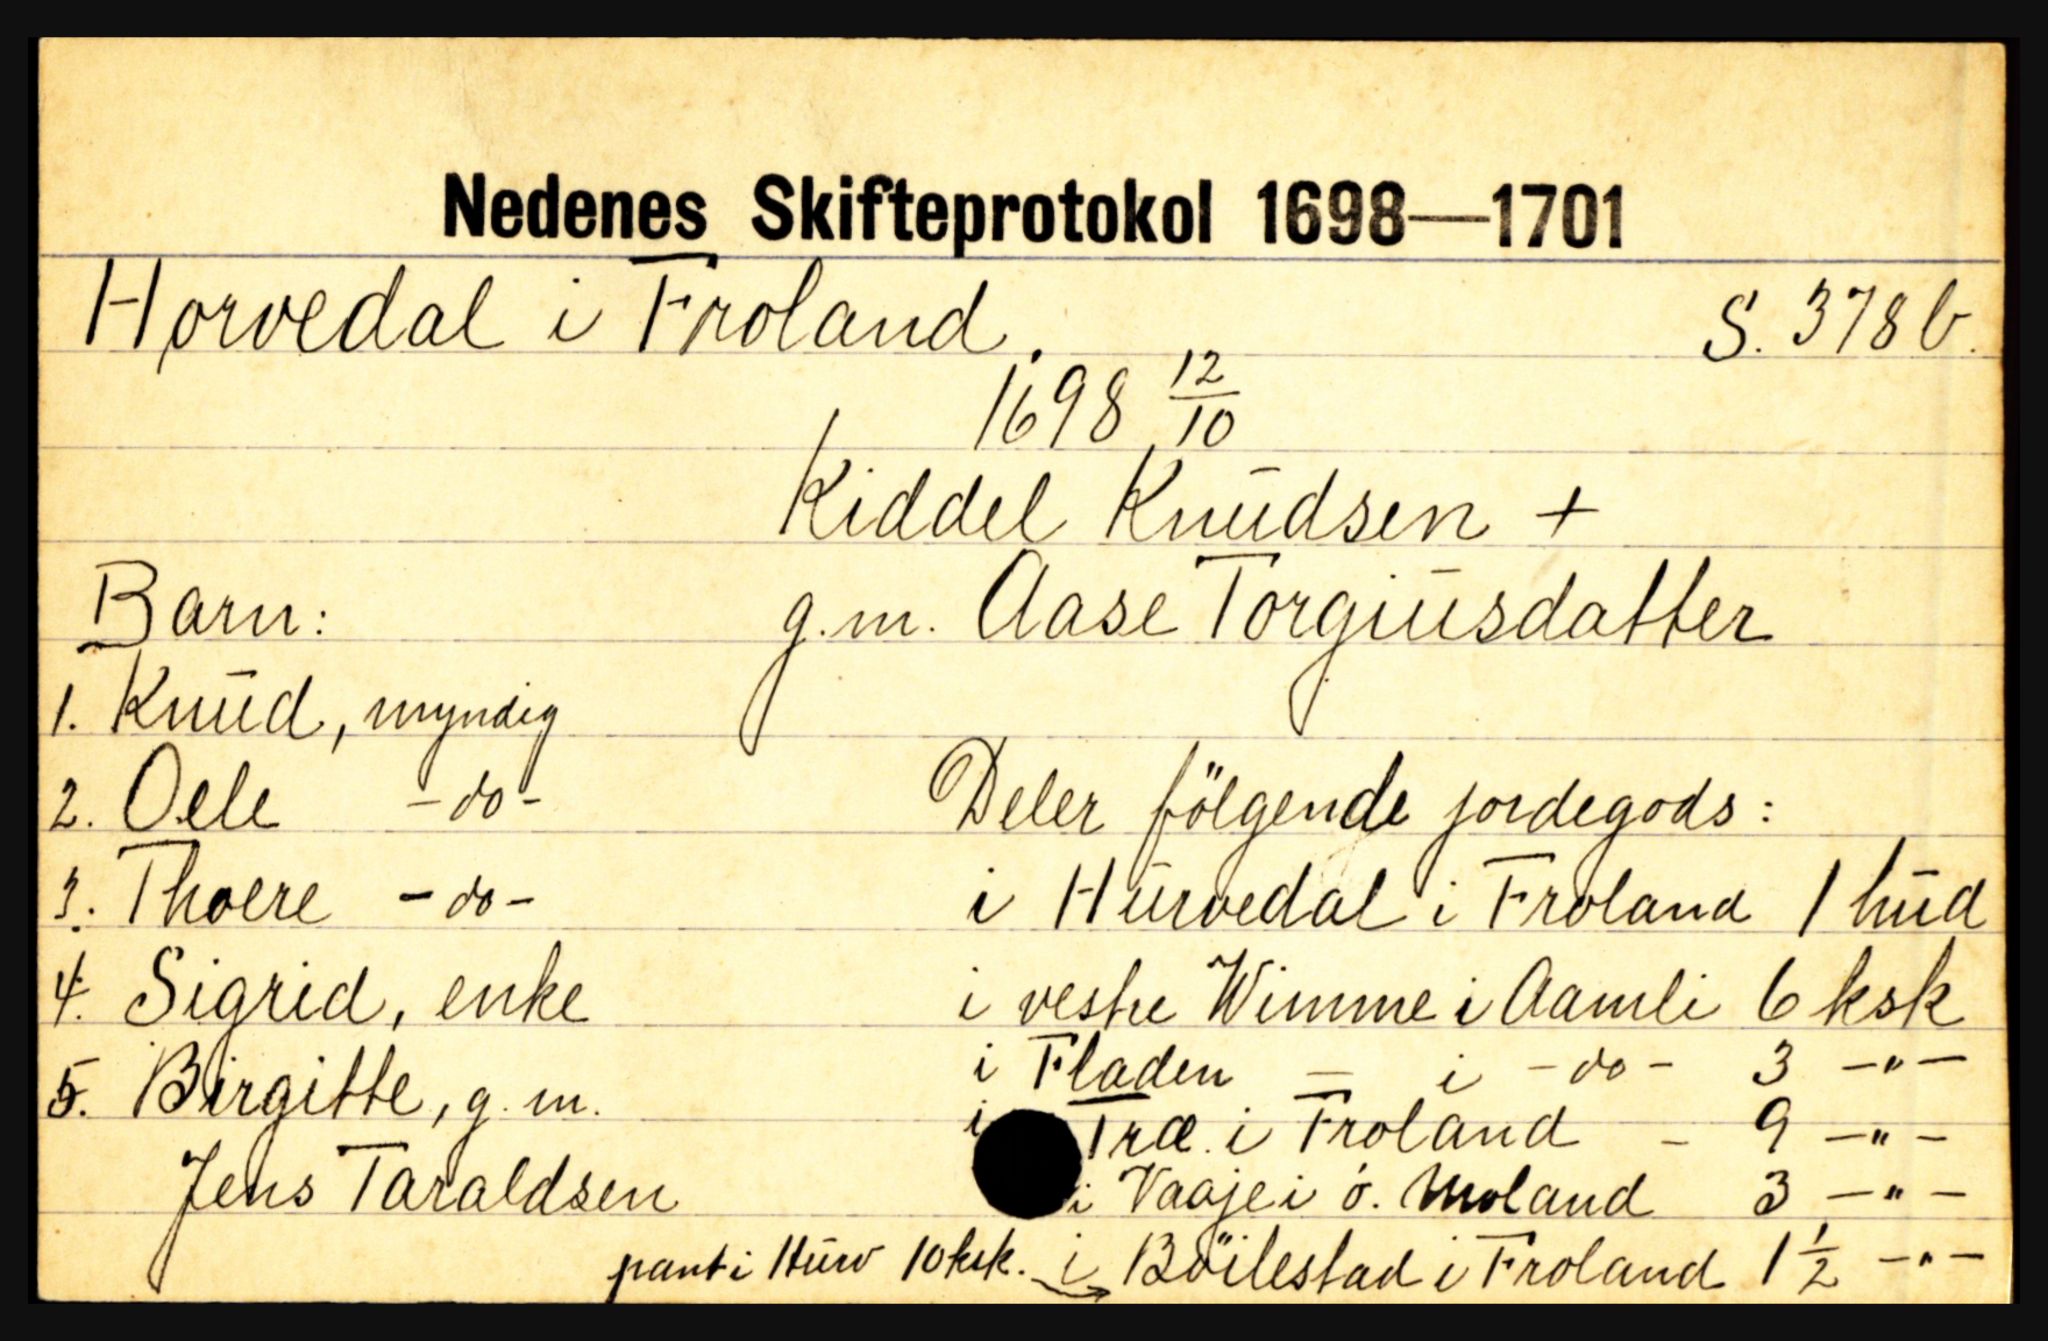 Nedenes Skifteprotokol 1698—1701
Horvedal i Froland. S. 378 b.
1698 12/10
Kiddel Knudsen +
Barn: g.m. Aase Torgiusdatter
1. Knud, myndig
2. Oele -do- Deler fölgende jordegods:
3. Thoere -do- i Hurvedal i Froland 1 hud
4. Sigrid, enke i vestre Wimme i Aamli 6 ksk
5. Birgitte, g.m. i Fladen - i -do- 3 -"-
i Træ i Froland - 9 -"-
Jens Taraldsen i Vaaje i ö. Moland 3 -"-
pant i Hurv 10 ksk. i Böilestad i Froland 1 1/2 -"-